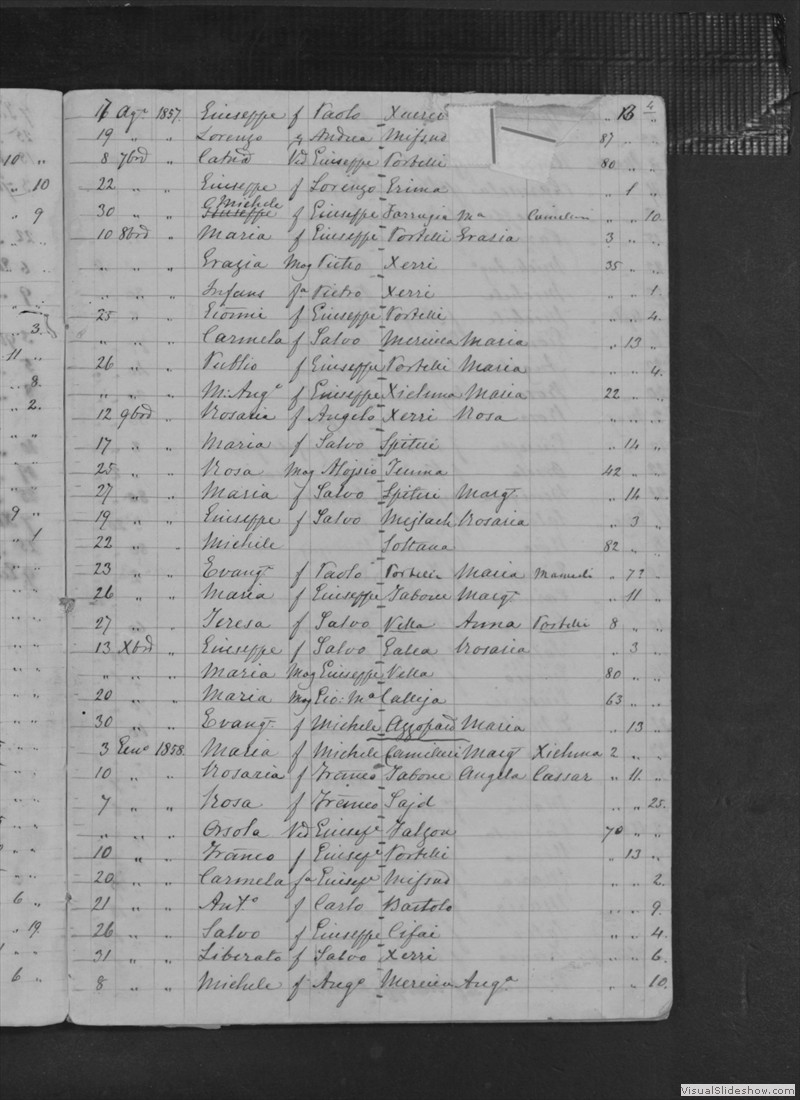 17 Agto 1857 Giuseppe f Paolo Xuereb " 13 "
19 " " Lorenzo f Andrea Mifsud 87 " "
8 7bre " Catna Vid Giuseppe Portelli 80 " "
22 " " Giuseppe f Lorenzo Grima " 1 "
30 " " G Michele f Giuseppe Farrugia Ma Camilleri " " 10
10 8bre " Maria f Giuseppe Portelli Grazia 3 " "
" " " Grazia Mog Pietro Xerri 35 " "
" " " Infans fa Pietro Xerri " " 1
25 " " Giovni f Giuseppe Portelli " " 4.
" " " Carmela f Salvo Mercieca Maria " 13 "
26 " " Publio f Giuseppe Portelli Maria " " 4.
" " " M: Anga f Giuseppe Xicluna Maria 22 " "
12 9bre " Rosaria f Angelo Xerri Rosa " " "
17 " " Maria f Salvo Spiteri " 14 "
25 " " Rosa Mog Alojsio Teuma 42 " "
27 " " Maria f Salvo Spiteri Margta " 14 "
19 " " Giuseppe f Salvo Mejlach Rosaria " 3 "
22 " " Michele Soltana 82 " "
23 " " Evangta f Paolo Portelli Maria " 7? "
26 " " Maria f Giuseppe Tabone Margta " 11 "
27 " " Teresa f Salvo Vella Anna Portelli 8 " "
13 Xbre " Giuseppe f Salvo Galea Rosaria " 3 "
" " " Maria Mog Giuseppe Vella 80 " "
20 " " Maria Mog Gio: Ma Calleja 63 " "
30 " " Evangta f Michele Azzopardi Maria " 13 "
3 Geno 1858. Maria f Michele Camilleri Margta Xicluna 2 " "
10 " " Rosaria f Franco Tabone Angela Cassar " 11. "
7 " " Rosa f Franco Sajd " " 25.
" " " Orsola Vid Giusepe Falzon 70 " "
10 " " Franco f Giusepe Portelli " 13 "
20 " " Carmela fa Giusepe Mifsud " " 2.
21 " " Anto f Carlo Bartolo " " 9.
26 " " Salvo f Giuseppe Cefai " " 4
31 " " Liberato f Salvo Xerri " " 6.
8 " " Michele f Ango Mercieca Anga " " 10.
VisualSlideshow.com